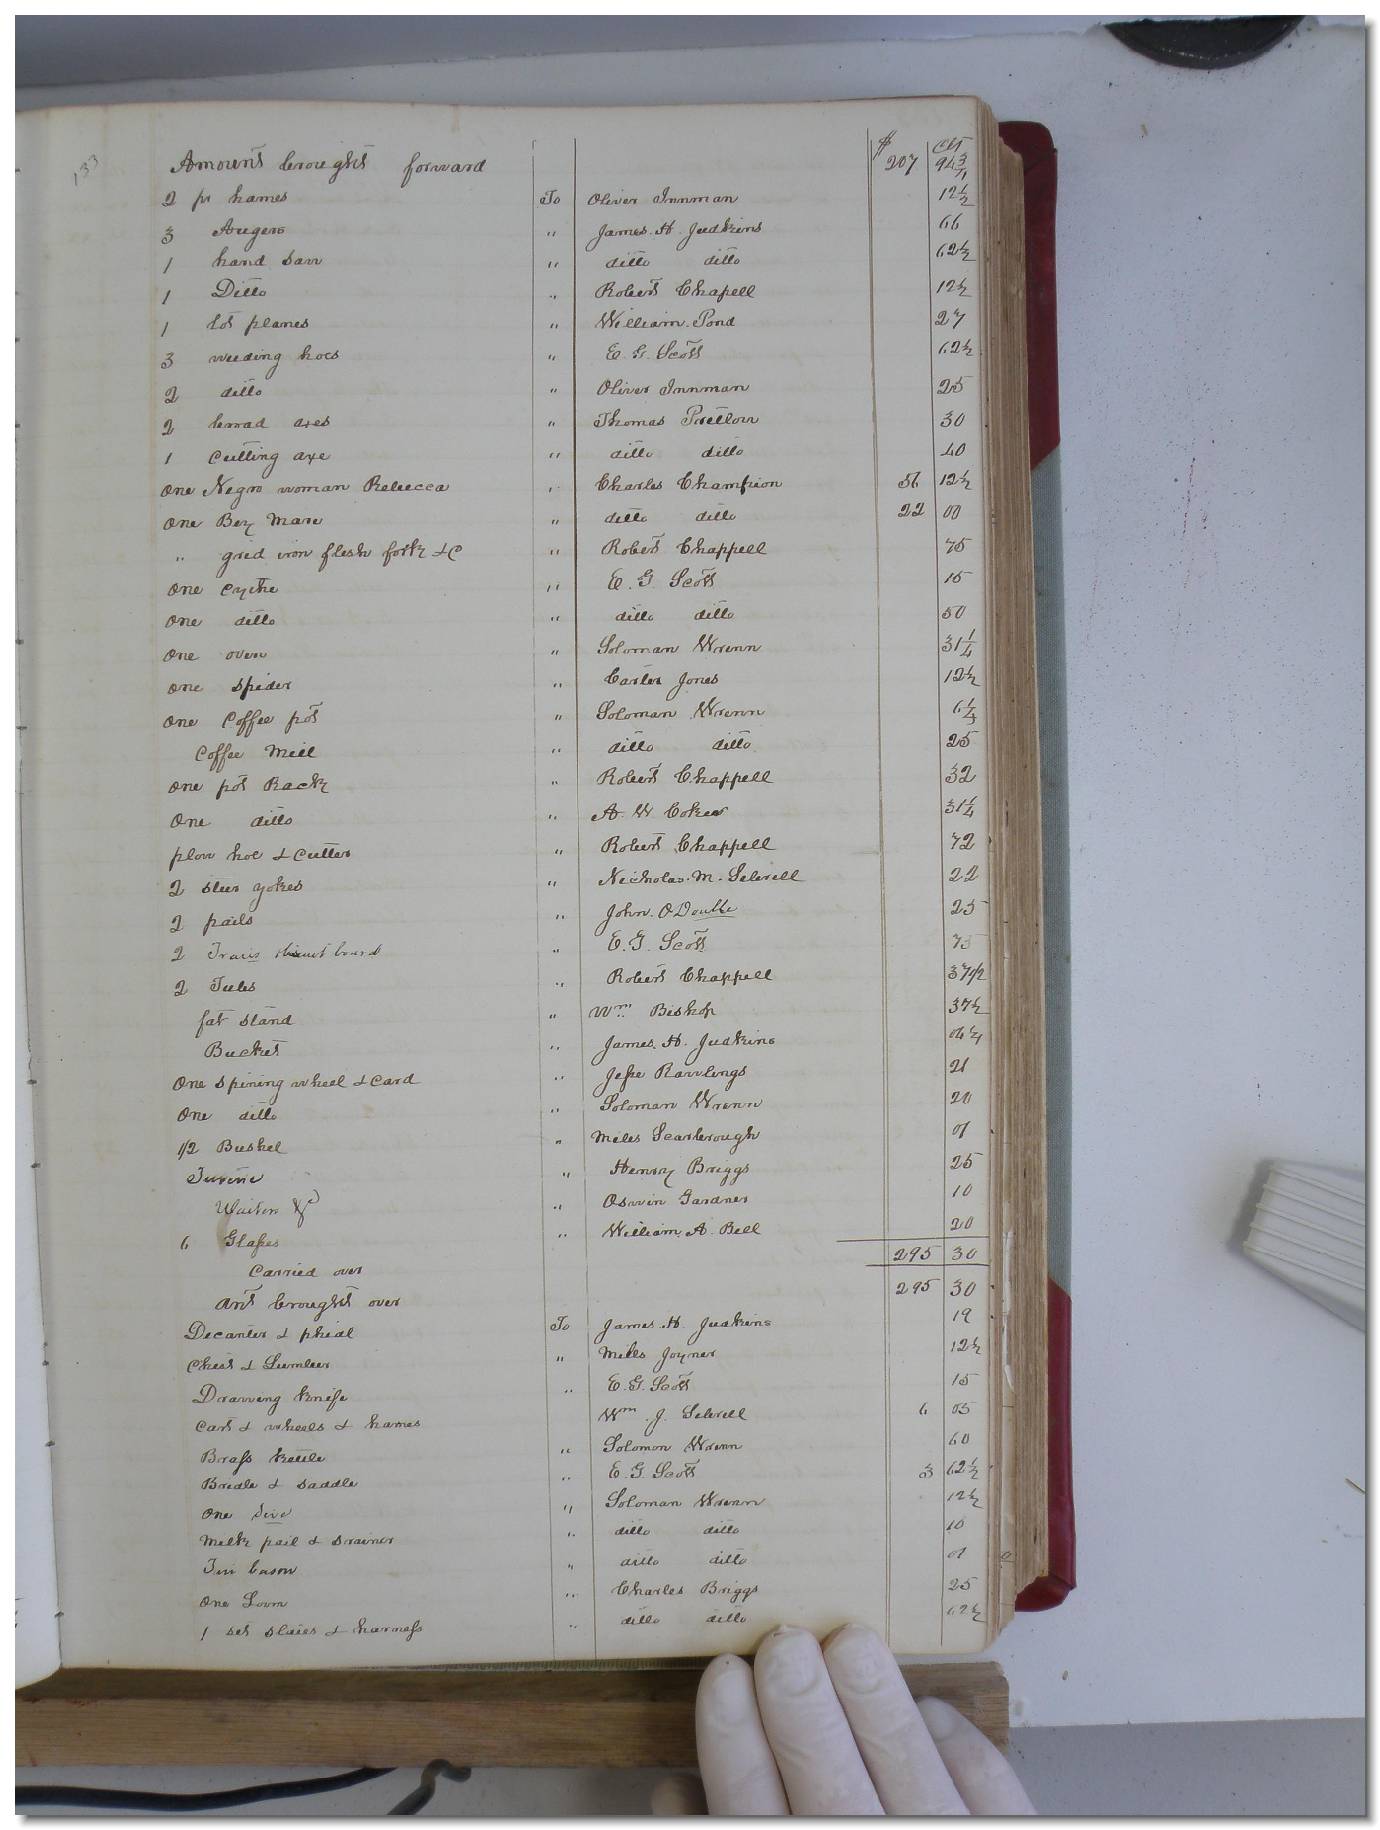 133
$ Cts
Amount brought forward 207 94 3/4
2 pr hames To Oliver Innman 12 1/2
3 Augers " James. H. Judkins 66
1 hand saw " ditto ditto 62 1/2
1 Ditto " Robert Chapell 12 1/2
1 lot planes " William. Pond 27
3 weeding hoes " E. G. Scott 62 1/2
2 ditto " Oliver Innman 25
2 broad axes " Thomas Pretlow 30
1 Cutting axe " ditto ditto 40
One Negro woman Rebecca " Charles Champion 56 12 1/2
One Bey Mare " ditto ditto 22 00
" grid iron flesh fork &C " Robert Chappell 75
One Cythe " E. G. Scott 15
One ditto " ditto ditto 50
One oven " Soloman Wrenn 31 1/4
One spider " Carter Jones 12 1/2
One Coffee pot " Soloman Wrenn 6 1/4
Coffee Mill " ditto ditto 25
One pot Rack " Robert Chappell 32
One ditto " A. W. Coker 31 1/4
plow hoe & Cutter " Robert Chappell 72
2 steer yokes " Nicholas. M. Sebrell 22
2 pails " John. 25
2 board " E. G. Scott 75
2 Tubs " Robert Chappell 37 1/2
fat stand " Wm. Bishop 37 1/2
Bucket " James. H. Judkins 06 1/4
One Spining wheel & Card " Jesse Rawlings 21
One ditto " Soloman Wrenn 20
1/2 Bushel " Miles Scarbrough 01
Turene " Henry Briggs 25
Waiters &c " Oswin Gardner 10
6 Glasses " William. A. Bell 20
Carried over 295 30
Amt brought over 295 30
Decanter & phial To James. H. Judkins 19
Chest & Lumber " Miles Joyner 12 1/2
Drawing knife " E. G. Scott 15
Cart & wheels & hames Wm. J. Sebrell 6 05
Brass kettle " Solomon Wrenn 60
Bridle & saddle " E. G. Scott 3 62 1/2
One Sive " Soloman Wrenn 12 1/2
Milk pail & srainer " ditto ditto 10
Tin bason " ditto ditto 01
One Loom " Charles Briggs 25
1 set slaies & harness " ditto ditto 62 1/2